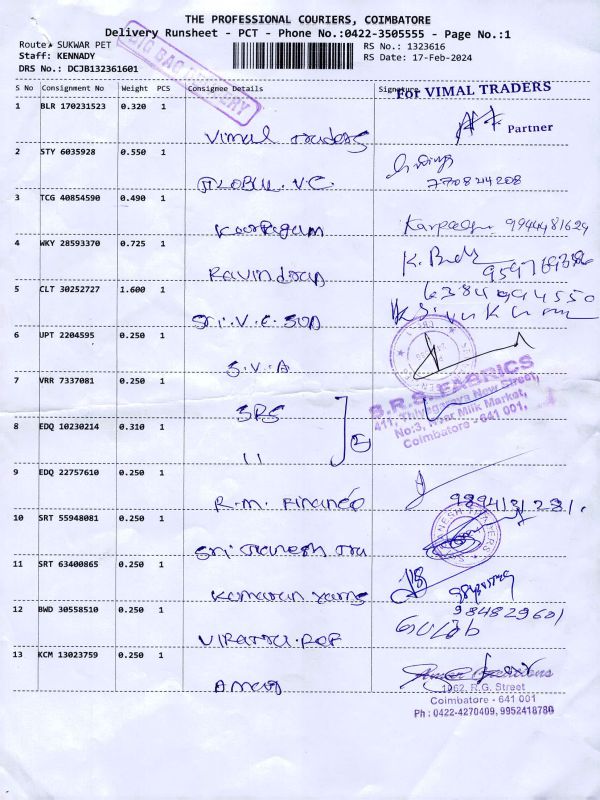 THE PROFESSIONAL COURIERS, COIMBATORE
Delivery Runsheet - PCT - Phone No.:0422-3505555 - Page No.:1
Route: SUKWAR PET
RS No.: 1323616
Staff: KENNADY
RS Date: 17-Feb-2024
DRS No.: DCJB132361601
BIG BAG DELIVERY
S No Consignment No Weight PCS Consignee Details Signature
For VIMAL TRADERS
1 BLR 170231523 0.320 1
Vimal Traders
Partner
2 STY 6035928 0.550 1
V.C.
3 TCG 40854590 0.490 1
Karpagam
9944481629
4 WKY 28593370 0.725 1
Ravindran
5 CLT 30252727 1.600 1
Sri.V.C.Son
6 UPT 2204595 0.250 1
S.V.A
7 VRR 7337081 0.250 1
SRS
S.R.S. FABRICS
411, Thiyagaraya New Street,
No:3, Near Milk Market,
Coimbatore - 641 001.
8 EDQ 10230214 0.310 1
11
2
9 EDQ 22757610 0.250 1
R.M. Finance
10 SRT 55948081 0.250 1
Sri Ganesh Tra
11 SRT 63400865 0.250 1
Kumaran Yarns
12 BWD 30558510 0.250 1
984829601
Gulab
13 KCM 13023759 0.250 1
Amar
1062, R.G. Street
Coimbatore - 641 001
Ph : 0422-4270409, 9952418780